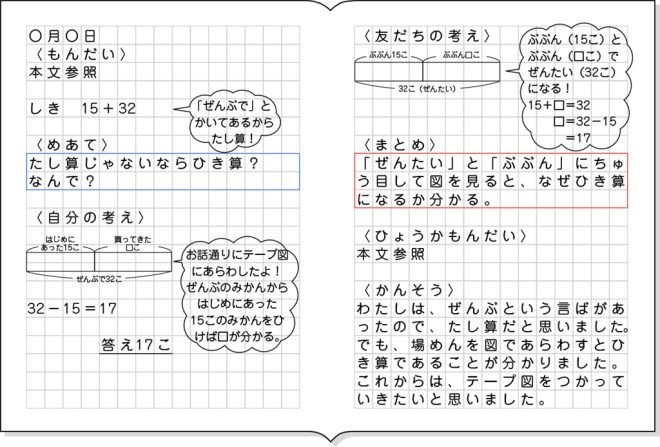 〇月〇日
〈もんだい〉
本文参照
しき 15+32
「ぜんぶで」と
かいてあるから
たし算！
〈めあて〉
たし算じゃないならひき算？
なんで？
〈自分の考え〉
はじめに
あった15こ
買ってきた
□こ
ぜんぶで32こ
お話通りにテープ図
にあらわしたよ！
ぜんぶのみかんから
はじめにあった
15このみかんをひ
けば□が分かる。
32－15＝17
答え17こ
〈友だちの考え〉
ぶぶん15こ
ぶぶん□こ
32こ（ぜんたい）
ぶぶん（15こ）と
ぶぶん（□こ）で
ぜんたい（32こ）
になる！
15+□=32
□=32－15
=17
〈まとめ〉
「ぜんたい」と「ぶぶん」にちゅ
う目して図を見ると、なぜひき算
になるか分かる。
〈ひょうかもんだい〉
本文参照
〈かんそう〉
わたしは、ぜんぶという言ばがあ
ったので、たし算だと思いました。
でも、場めんを図であらわすとひ
き算であることが分かりました。
これからは、テープ図をつかって
いきたいと思いました。